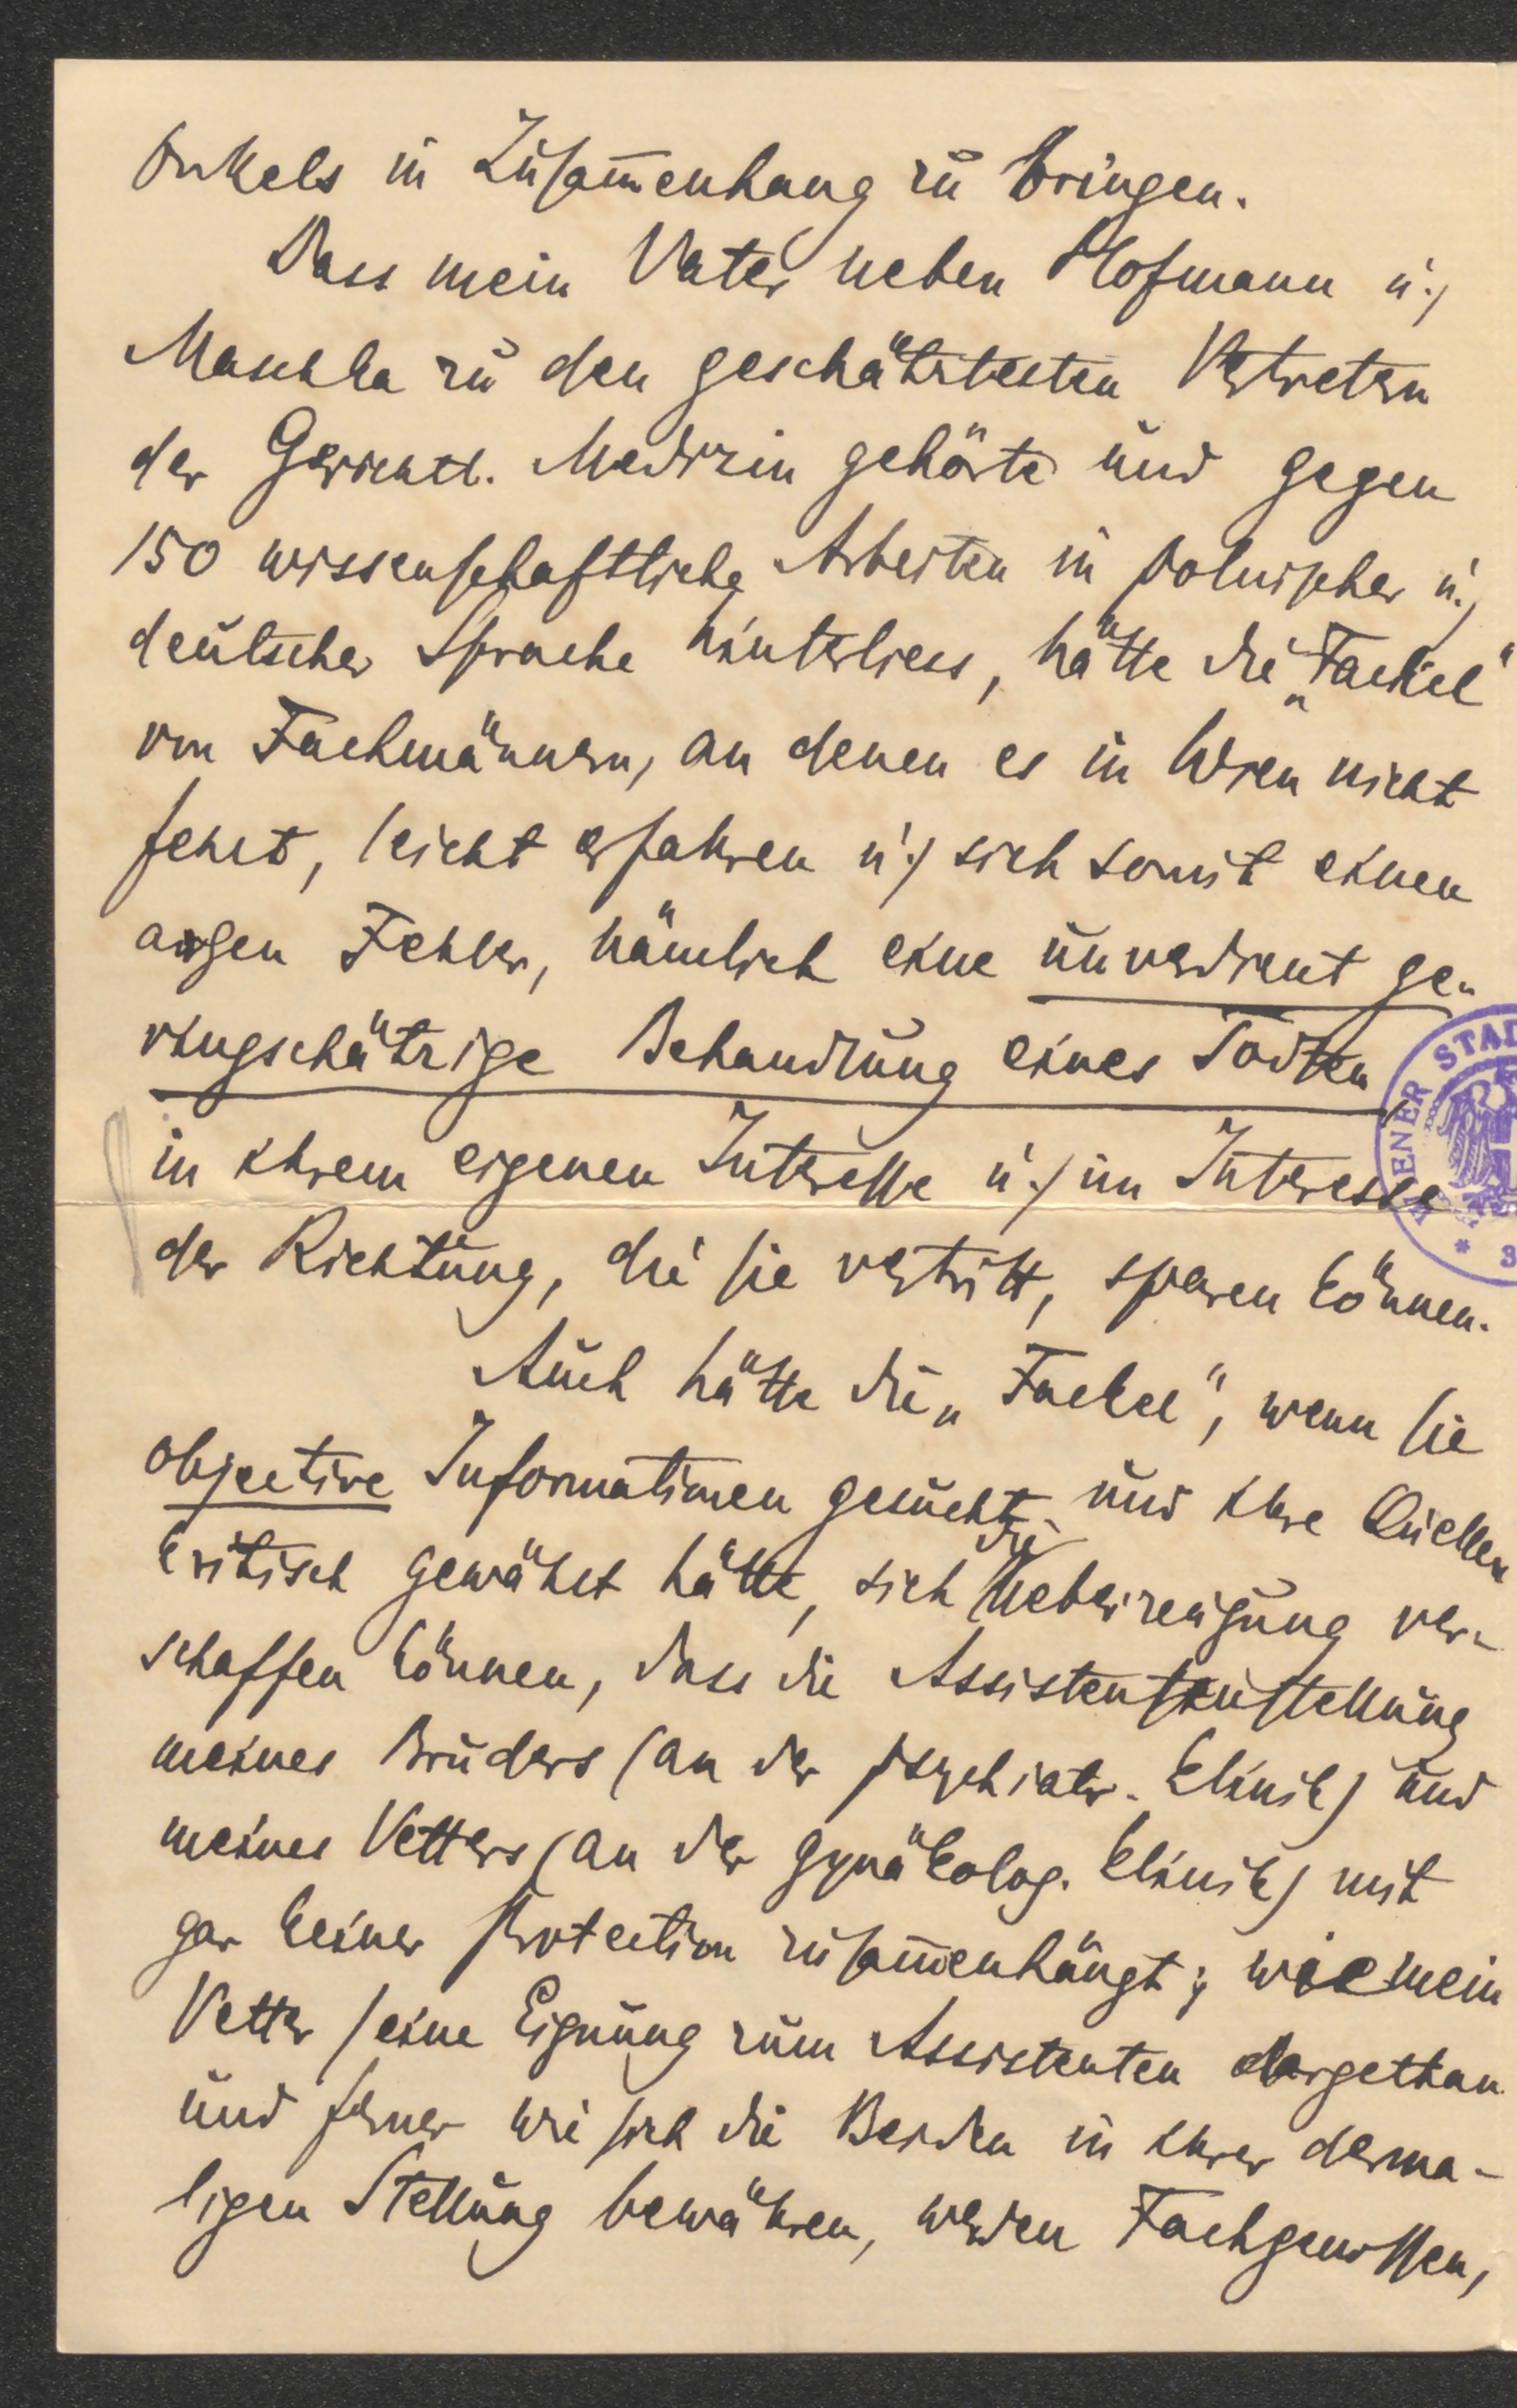 Onkels in Zusam̅enhang zu bringen.
Dass mein Vater neben Hofmann u.
Maschka zu den geschätztesten Vertretern
der Gerichtl. Medizin gehörte und gegen
150 wissenschaftliche Arbeiten in polnischer u.
deutscher Sprache hinterliess, hätte die „Fackel“
von Fachmännern, an denen es in Wien nicht
fehlt, leicht erfahren u. sich somit einen
argen Fehler, nämlich eine unverdient ge-
ringschätzige Behandlung eines Todten
in ihrem eigenen Interesse u. im Interesse
der Richtung, die sie vertritt, sparen können.
Auch hätte die „Fackel“, wenn sie
objective Informationen gesucht und ihre Quellen
kritisch gewählt hätte, sich die Ueberzeugung ver-
schaffen können, dass die Assistentenstellung
meines Bruders (an der psychiatr. Klinik) und
meines Vetters (an der gynäkolog. Klinik) mit
gar keiner Protection zusam̅enhängt; wie mein
Vetter seine Eignung zum Assistenten dargethan
und ferner wie sich die Beiden in ihrer derma-
ligen Stellung bewähren, werden Fachgenossen,
WIENER STAD